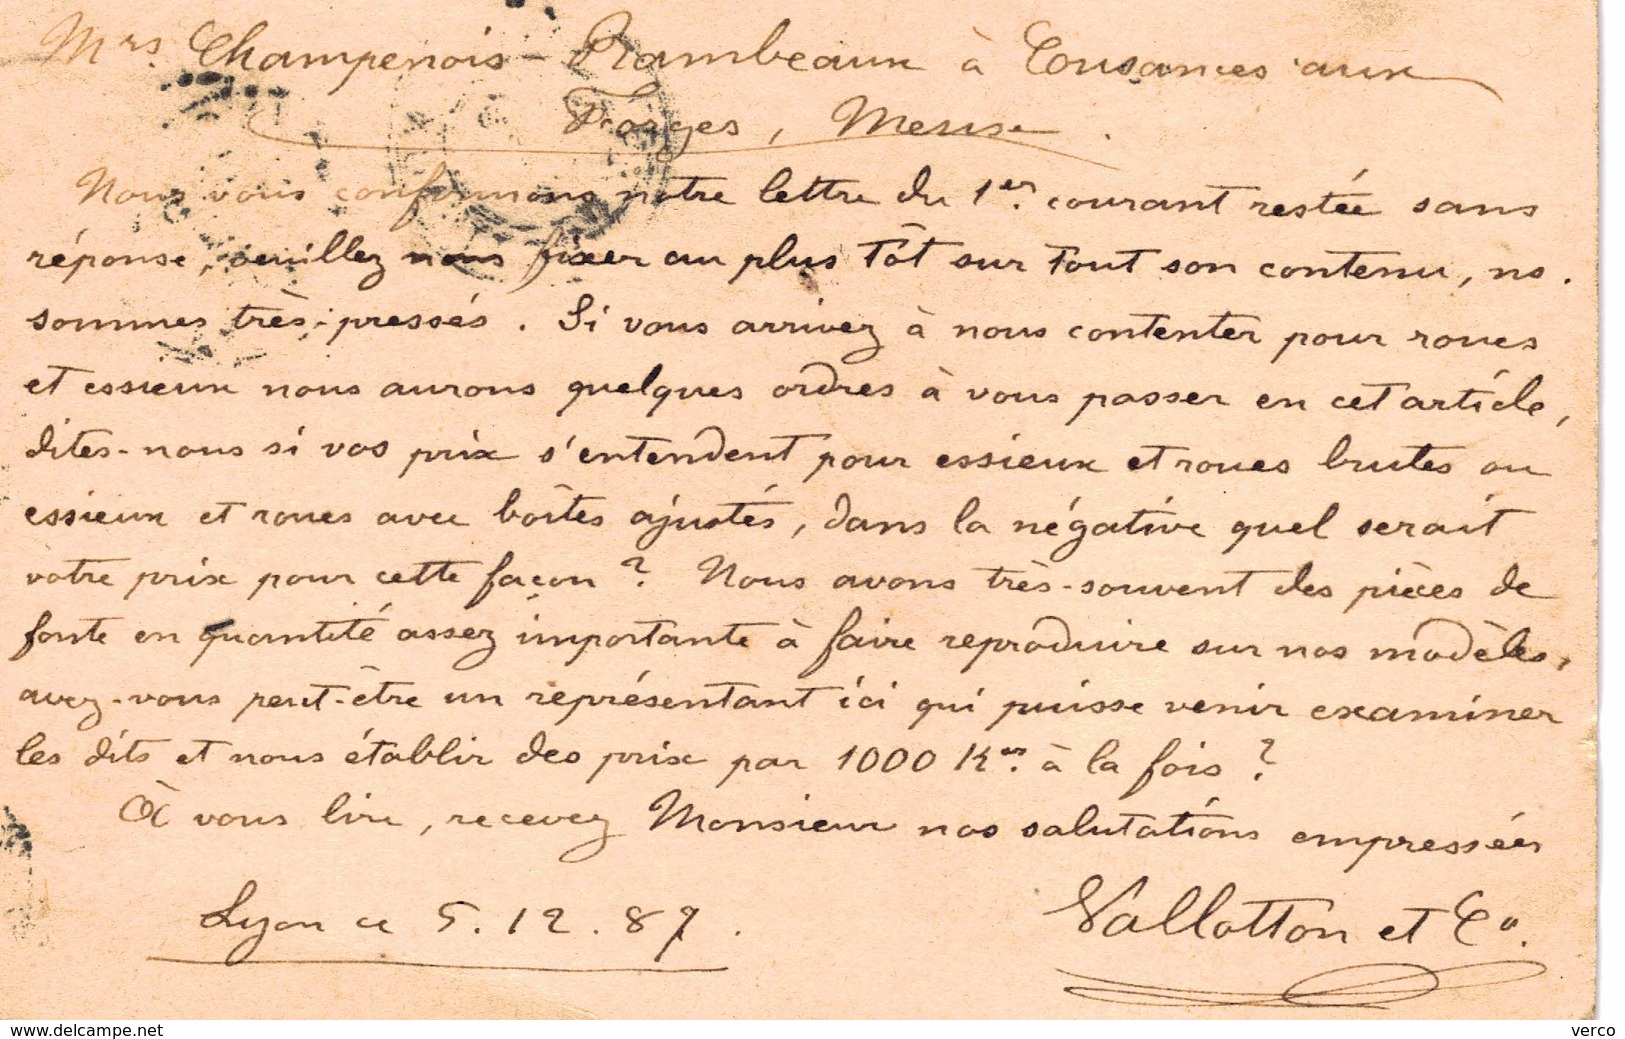 Mrs. Champenois-Rambeaux à Cousances aux
Forges, Meuse.
Nous vous confirmons notre lettre du 1er. courant restée sans
réponse, veuillez nous fixer au plus tôt sur tout son contenu, ns.
sommes très-pressés. Si vous arrivez à nous contenter pour roues
et essieux nous aurons quelques ordres à vous passer en cet article,
dites-nous si vos prix s'entendent pour essieux et roues brutes ou
essieux et roues avec boîtes ajustés, dans la négative quel serait
votre prix pour cette façon ? Nous avons très-souvent des pièces de
fonte en quantité assez importante à faire reproduire sur nos modèles,
avez-vous peut-être un représentant ici qui puisse venir examiner
les dits et nous établir des prix par 1000 Kos. à la fois ?
A vous lire, recevez Monsieur nos salutations empressées
Lyon ce 5.12.87.
Vallotton et Co.
www.delcampe.net
verco